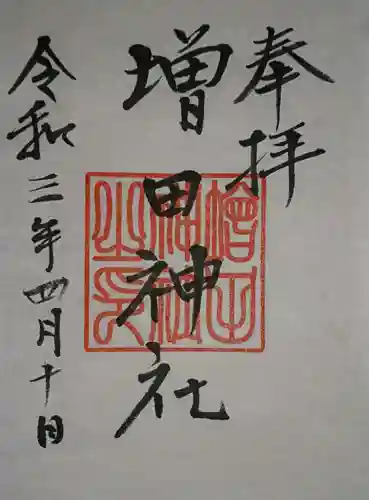 奉拝
増田神社
令和三年四月十日